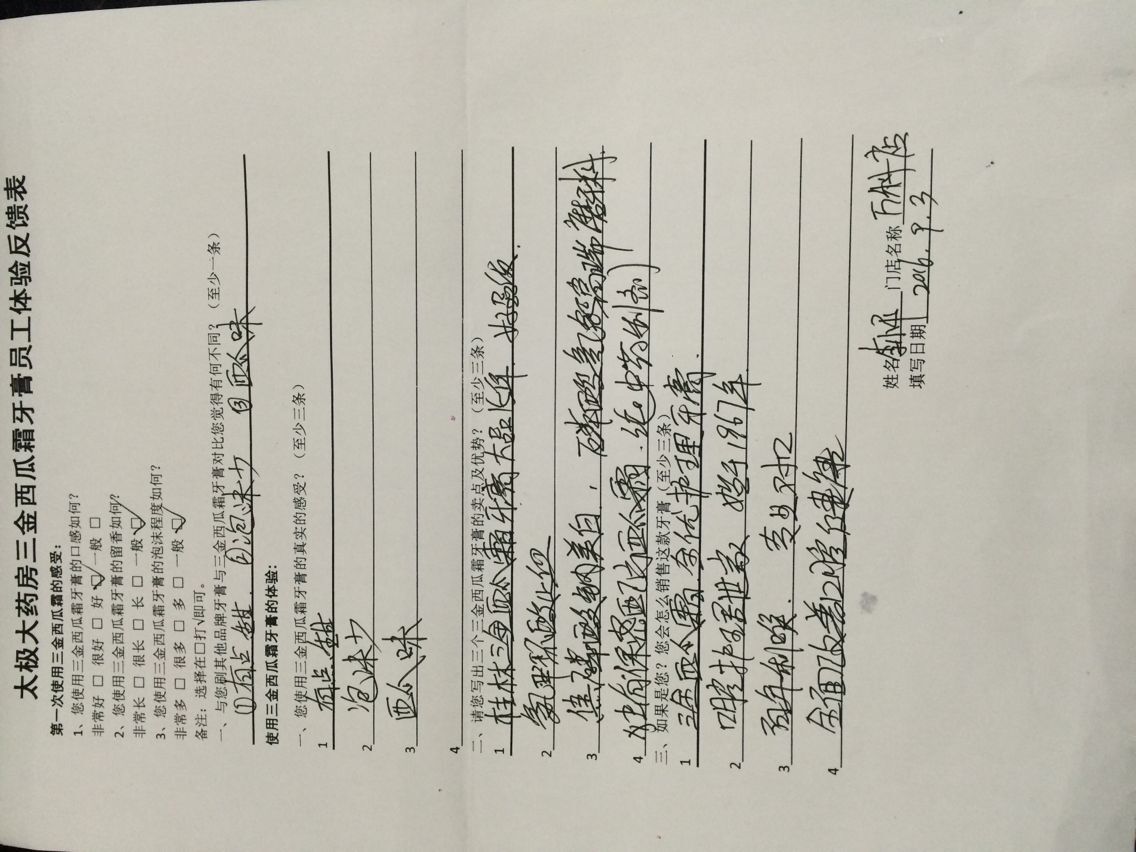 太极大药房三金西瓜霜牙膏员工体验反馈表
第一次使用三金西瓜霜的感受：
1、您使用三金西瓜霜牙膏的口感如何？
非常好 □ 很好 □ 好 ☑ 一般 □
2、您使用三金西瓜霜牙膏的留香如何？
非常长 □ 很长 □ 长 □ 一般 ☑
3、您使用三金西瓜霜牙膏的泡沫程度如何？
非常多 □ 很多 □ 多 □ 一般 ☑
备注：选择在□打√即可。
一、与您刷其他品牌牙膏与三金西瓜霜牙膏对比您觉得有何不同？（至少一条）
①有点甜．②泡沫少 ③西瓜味
使用三金西瓜霜牙膏的体验：
一、您使用三金西瓜霜牙膏的真实的感受？（至少三条）
1 有点甜
2 泡沫少
3 西瓜味
4
二、请您写出三个三金西瓜霜牙膏的卖点及优势？（至少三条）
1 桂林三金西瓜霜牙膏大品牌
2 氨甲环酸止血
3 焦磷酸钠美白，磷酸氢钙高端磨料
4 西瓜霜
三、如果是您？您会怎么销售这款牙膏（至少三条）
1 三金西瓜霜 护理牙膏
2 口腔护理 始于1967年
3 专业对口
4 全面改善口腔健康
姓名 门店名称 万科店
填写日期 2016.9.3